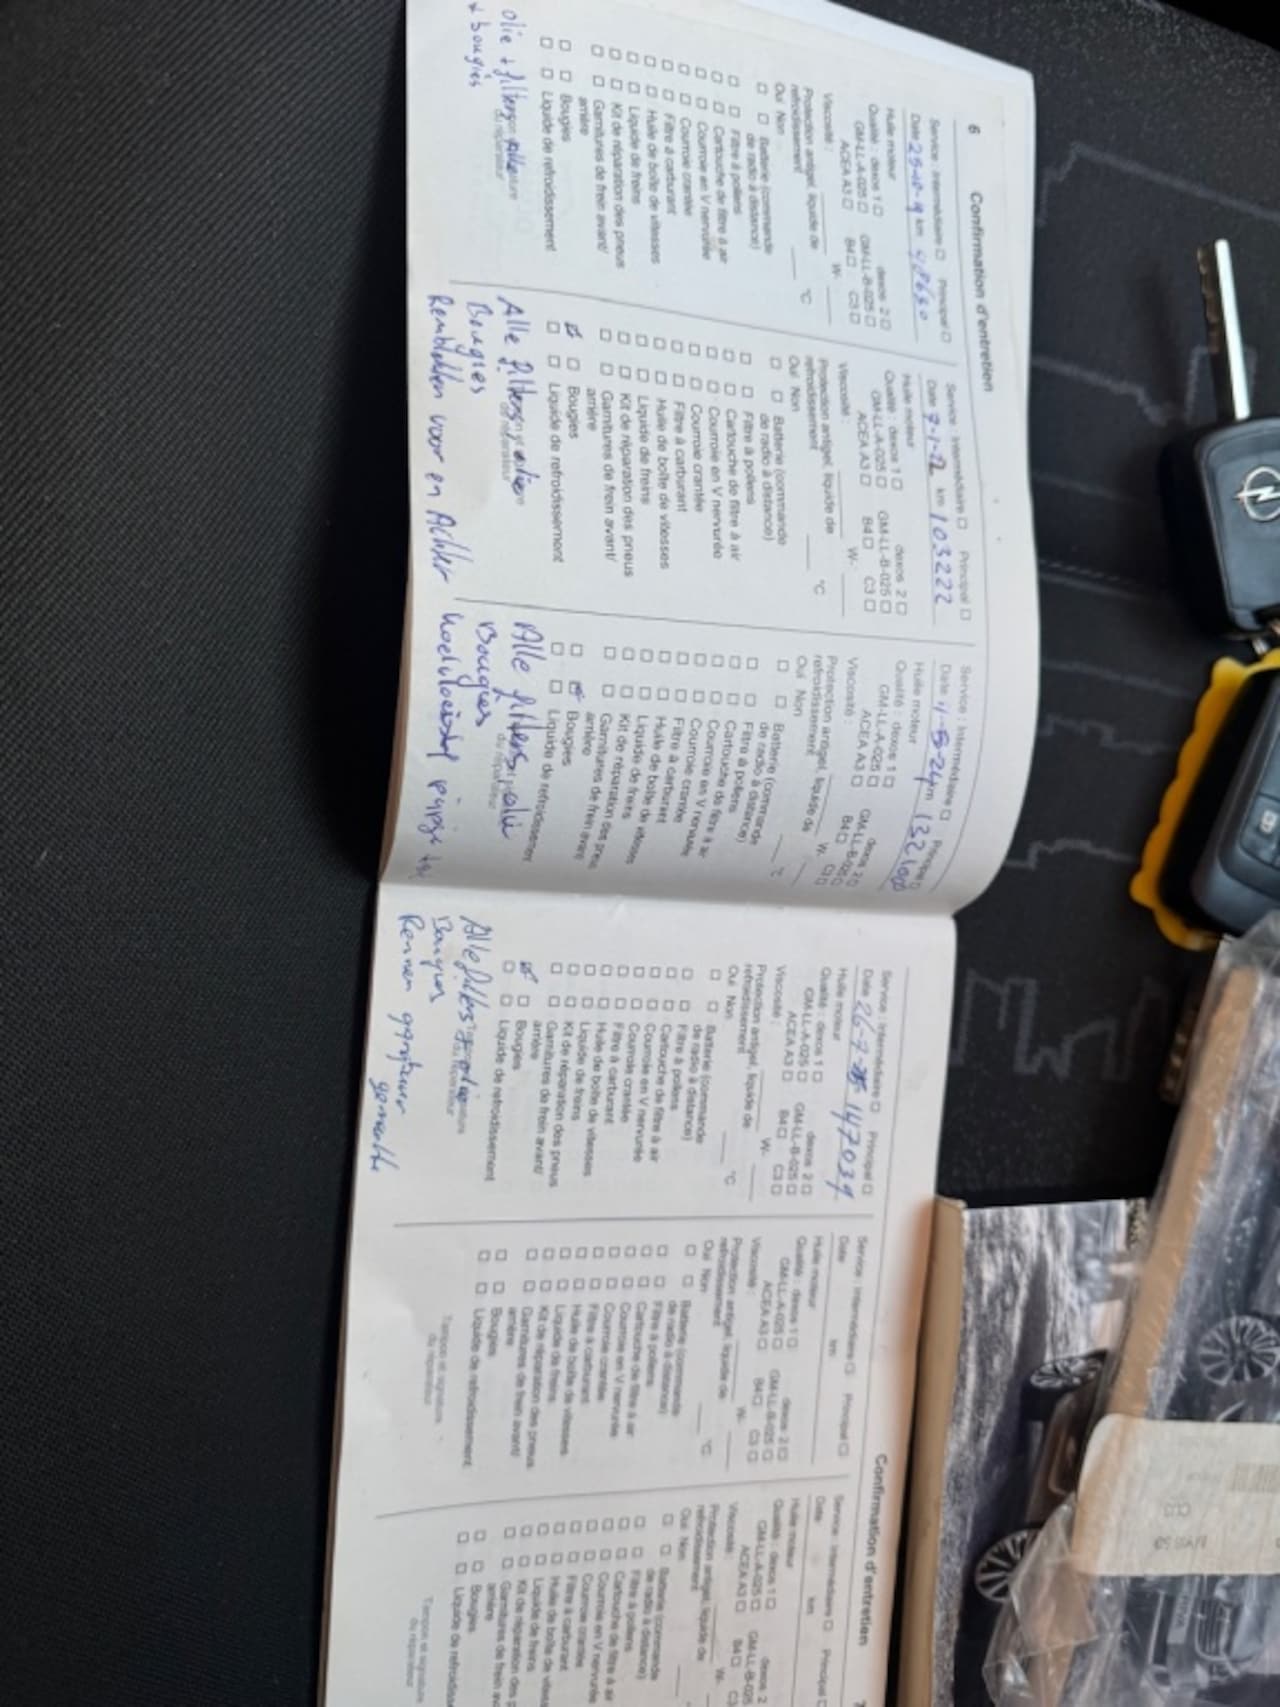 6
Confirmation d'entretien
Service : Intermédiaire □ Principal □
Date 25-10-19 km
Huile moteur
Qualité : dexos 1 □ dexos 2 □
GM-LL-A-025 □ GM-LL-B-025 □
ACEA A3 □ B4 □ C3 □
Viscosité : W-
Protection antigel, liquide de
refroidissement °C
Oui Non
□ □ Batterie (commande
de radio à distance)
□ □ Filtre à pollens
□ □ Cartouche de filtre à air
□ □ Courroie en V nervurée
□ □ Courroie crantée
□ □ Filtre à carburant
□ □ Huile de boîte de vitesses
□ □ Liquide de freins
□ □ Kit de réparation des pneus
□ □ Garnitures de frein avant/
arrière
□ □ Bougies
□ □ Liquide de refroidissement
olie + filters
+ bougies
Service : Intermédiaire □ Principal □
Date 7-1-22 km 103222
Huile moteur
Qualité : dexos 1 □ dexos 2 □
GM-LL-A-025 □ GM-LL-B-025 □
ACEA A3 □ B4 □ C3 □
Viscosité : W-
Protection antigel, liquide de
refroidissement °C
Oui Non
□ □ Batterie (commande
de radio à distance)
□ □ Filtre à pollens
□ □ Cartouche de filtre à air
□ □ Courroie en V nervurée
□ □ Courroie crantée
□ □ Filtre à carburant
□ □ Huile de boîte de vitesses
□ □ Liquide de freins
□ □ Kit de réparation des pneus
□ □ Garnitures de frein avant/
arrière
☑ □ Bougies
□ □ Liquide de refroidissement
Alle filters olie
Bougies
Remblokken voor en Achter
Service : Intermédiaire □ Principal □
Date 4-5-24 km
Huile moteur
Qualité : dexos 1 □ dexos 2 □
GM-LL-A-025 □ GM-LL-B-025 □
ACEA A3 □ B4 □ C3 □
Viscosité : W-
Protection antigel, liquide de
refroidissement °C
Oui Non
□ □ Batterie (commande
de radio à distance)
□ □ Filtre à pollens
□ □ Cartouche de filtre à air
□ □ Courroie en V nervurée
□ □ Courroie crantée
□ □ Filtre à carburant
□ □ Huile de boîte de vitesses
□ □ Liquide de freins
□ □ Kit de réparation des pneus
□ □ Garnitures de frein avant/
arrière
□ ☑ Bougies
□ □ Liquide de refroidissement
Alle filters olie
Bougies
koelvloeistof
Service : Intermédiaire □ Principal □
Date 26-7-25 147039
Huile moteur
Qualité : dexos 1 □ dexos 2 □
GM-LL-A-025 □ GM-LL-B-025 □
ACEA A3 □ B4 □ C3 □
Viscosité : W-
Protection antigel, liquide de
refroidissement °C
Oui Non
□ □ Batterie (commande
de radio à distance)
□ □ Filtre à pollens
□ □ Cartouche de filtre à air
□ □ Courroie en V nervurée
□ □ Courroie crantée
□ □ Filtre à carburant
□ □ Huile de boîte de vitesses
□ □ Liquide de freins
□ □ Kit de réparation des pneus
□ □ Garnitures de frein avant/
arrière
☑ □ Bougies
□ □ Liquide de refroidissement
Alle filters + olie
Bougies
Remmen
Service : Intermédiaire □ Principal □
Date km
Huile moteur
Qualité : dexos 1 □ dexos 2 □
GM-LL-A-025 □ GM-LL-B-025 □
ACEA A3 □ B4 □ C3 □
Viscosité : W-
Protection antigel, liquide de
refroidissement °C
Oui Non
□ □ Batterie (commande
de radio à distance)
□ □ Filtre à pollens
□ □ Cartouche de filtre à air
□ □ Courroie en V nervurée
□ □ Courroie crantée
□ □ Filtre à carburant
□ □ Huile de boîte de vitesses
□ □ Liquide de freins
□ □ Kit de réparation des pneus
□ □ Garnitures de frein avant/
arrière
□ □ Bougies
□ □ Liquide de refroidissement
Tampon et signature
du réparateur
Confirmation d'entretien
Service : Intermédiaire □ Principal □
Date km
Huile moteur
Qualité : dexos 1 □ dexos 2 □
GM-LL-A-025 □ GM-LL-B-025
ACEA A3 □ B4 □ C3
Viscosité : W-
Protection antigel, liquide de
refroidissement
Oui Non
□ □ Batterie (commande
de radio à distance)
□ □ Filtre à pollens
□ □ Cartouche de filtre à air
□ □ Courroie en V nervurée
□ □ Courroie crantée
□ □ Filtre à carburant
□ □ Huile de boîte de
□ □ Liquide de freins
□ □ Kit de réparation des
□ □ Garnitures de frein
arrière
□ □ Bougies
□ □ Liquide de
Tampon et signature
du réparateur